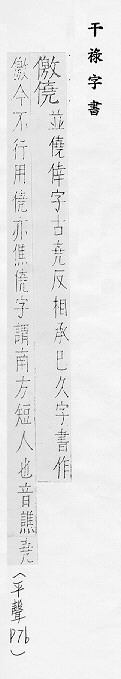 干祿字書
儌僥
並僥倖字古堯反相承已久字書作
儌今不行用僥亦僬僥字謂南方短人也音譙堯
(平聲
P7b)